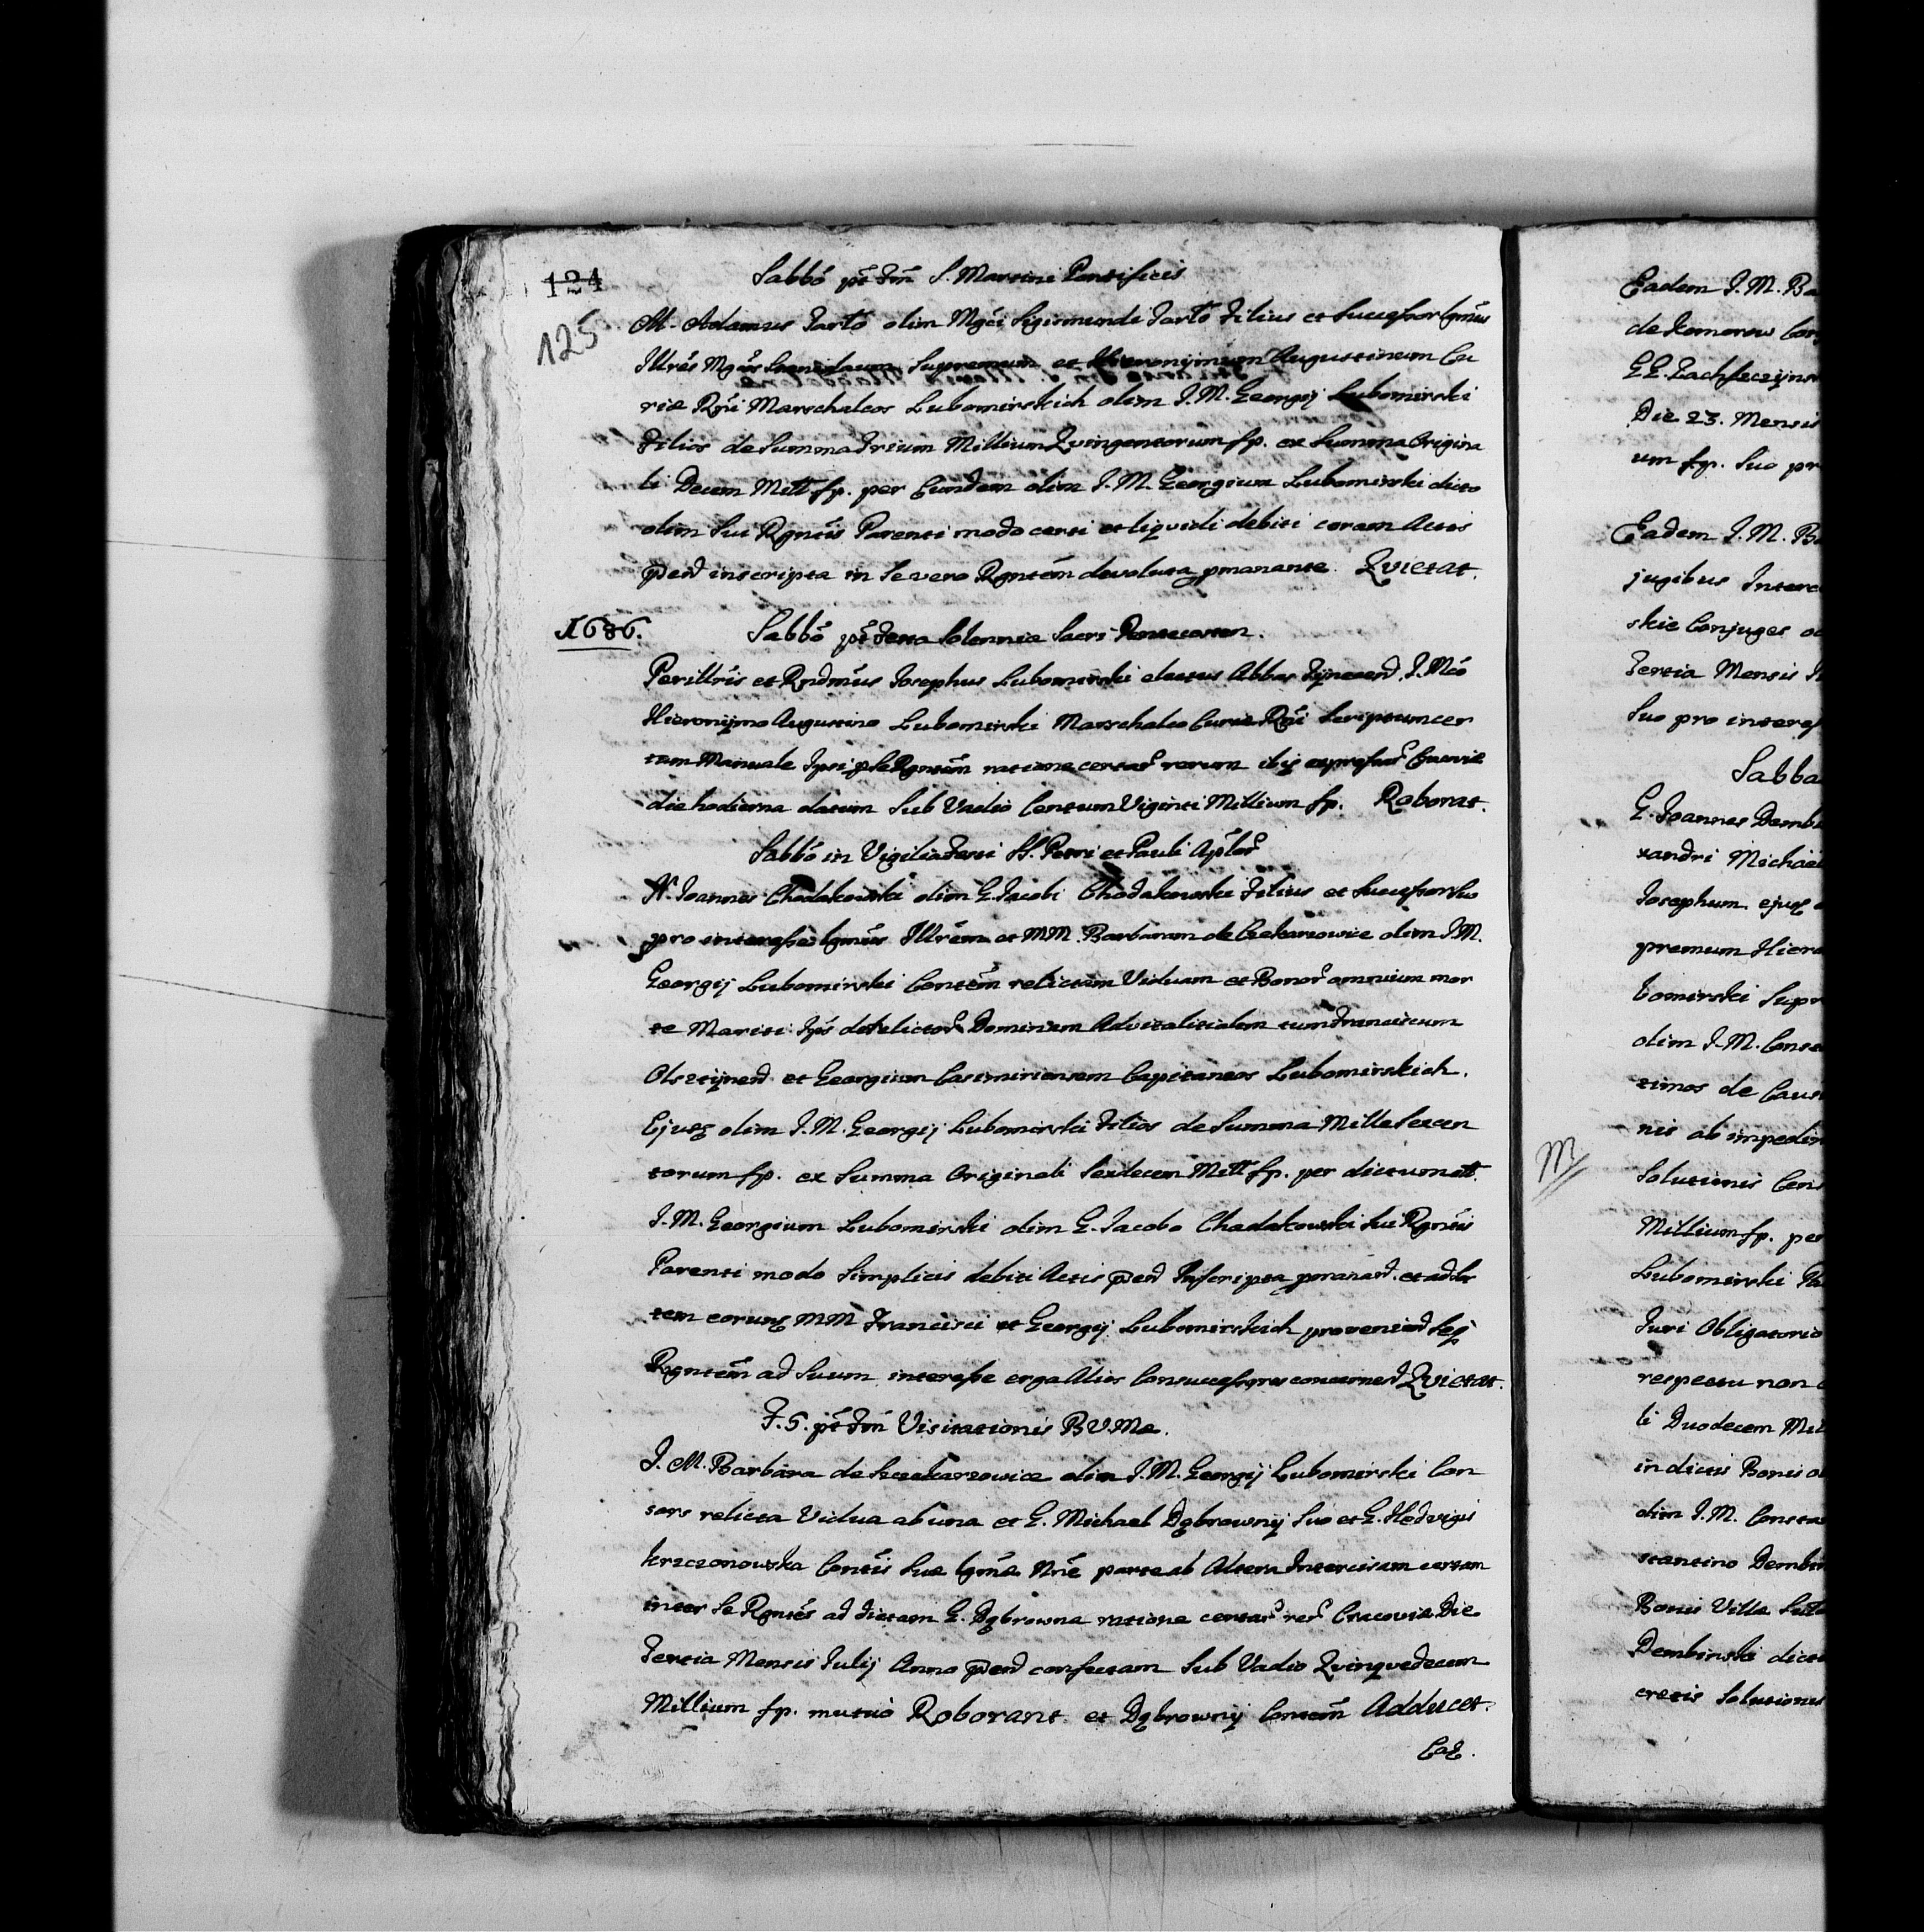 124
125
Sabbô pt Fm S. Martini Pontificis
M. Adamus Tarło olim Mgci Sigismundi Tarło Filius et Successor Igmûs
Illrês Mgcos Stanislaum Supremum et Hieronijmum Augustinum Cu
riæ Rgni Marschalcos Lubomirskich olim I. M. Georgij Lubomirski
Filios de Summa Trium Millium Quingentorum fp. ex Summa Origina
li Decem Mill fp. per Eundem olim I. M. Georgium Lubomirski dicto
olim Sui Rgntis Parenti modo certi et liquidi debiti coram Actis
pnd inscripta in Se vero Rgntêm devoluta pmanante. Quietat.
1686.
Sabbô pt Festa Solennia Sacri Pentecosten.
Perillris et Rndmus Iosephus Lubomirski electus Abbas Tijnecens. I. Mco
Hieronijmo Augustino Lubomirski Marschalco Curiæ Rgni Scriptum cer
tum Manuale Ipsi p Se Rgntêm ratione certar rerum ibij expressar Cracoviæ
die hodierna datum Sub Vadio Centum Viginti Millium fp. Roborat.
Sabbô in Vigilia Festi SS. Petri et Pauli Aplor
N. Ioannes Chodakowski olim G. Iacobi Chodakowski Filius et Successor Suo
pro interesse Igmûs Illrêm et MM. Barbaram de Czekarzowice olim I. M.
Georgij Lubomirski Contêm relictam Viduam et Bonor omnium mor
te Mariti Ips derelictor Dominam Advitalitialem tum Franciscum
Olsztijnens. et Georgium Casimiriensem Capitaneos Lubomirskich.
Ejusq olim I. M. Georgij Lubomirski Filios de Summa Mille Sexcen
torum fp. ex Summa Originali Sexdecem Mill fp. per dictum
I. M. Georgium Lubomirski olim G. Iacobo Chodakowski Sui Rgntis
Parenti modo Simplicis debiti Actis pnd Inscripta pmanand. et ad Sor
tem eorunq MM Francisci et Georgij Lubomirskich proveniend Seq
Rgntêm ad Suum interesse erga Alios Consuccessores concernend Quietat.
F. 5. pt Fm Visitationis B V Mæ.
I. M. Barbara de Szczekarzowice olim I. M. Georgij Lubomirski Con
sors relicta Vidua ab una et G. Michael Dąbrownij Suo et G. Hedvigis
Krzczonowska Contis Suæ Igmæ Nnê parte ab Altera Intercisam certam
inter Se Rgntes ad dictam G. Dąbrowna ratione certar rer Cracoviæ Die
Tertia Mensis Iulij Anno pnd confectam Sub Vadio Quinquedecem
Millium fp. mutuò Roborant et Dąbrownij Contêm Adducet.
Eadem I. M. Ba
de Komorow Con
GG.
Die 23. Mensis
um fp. Suo pr
Eadem I. M. Ba
jugibus Interc
skie Conjuges
Tertia Mensis
Suo pro interes
Sabba
G. Ioannes Dembi
xandri Michael
Iosephum ejusq
premum Hiero
bomirski Supr
olim I. M. Consta
timos de Caus
nis ab impedim
M
Solutionis Cens
Millium fp. per
Lubomirski Pa
Iuri Obligatorio
respectu non
li Duodecem Mil
in dictis Bonis
olim I. M. Consta
stantino Dembin
Bonis Villa
Dembinski dict
cretis Solutionis